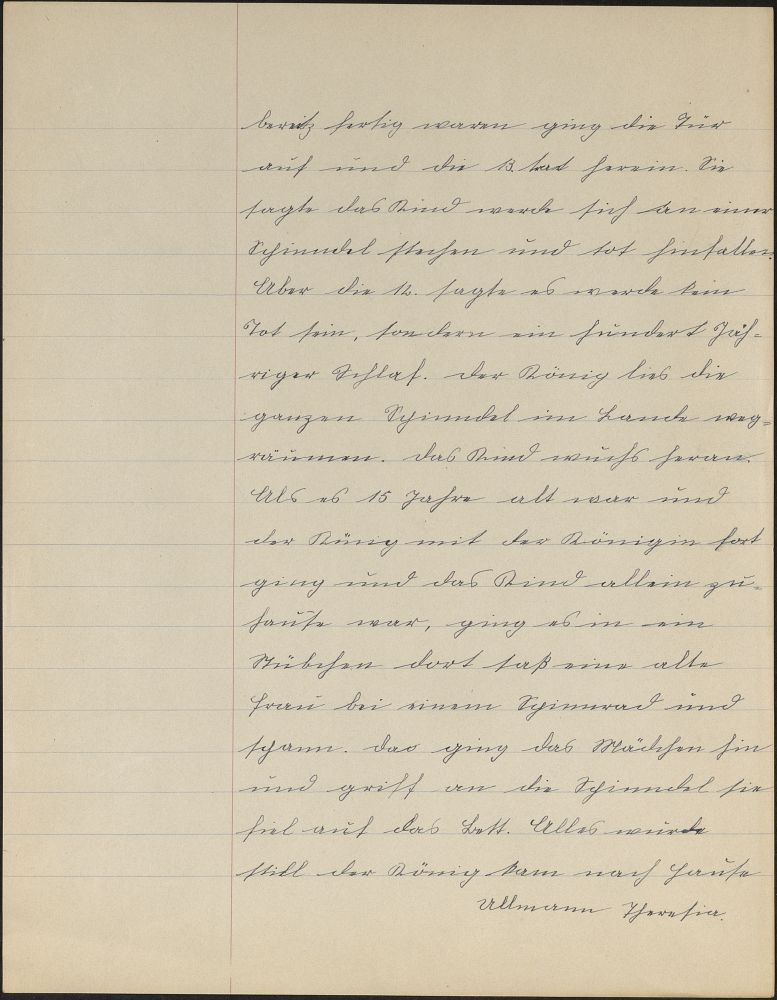 bereitz fertig waren ging die Tür
auf und die 13. trat herein. Sie
sagte das Kind werde sich an einer
Schinndel stechen und tot hinfallen.
Aber die 12. sagte es werde kein
Tot sein, sondern ein hundert Jäh=
riger Schlaf. der König lies die
ganzen Spinndel im Lande weg=
räumen. das Kind wuchs heran.
Als es 15 Jahre alt war und
der König mit der Königin fort
ging und das Kind allein zu=
hause war, ging es in ein
Stübchen dort saß eine alte
Frau bei einem Spinnrad und
spann. das ging das Mädchen hin
und griff an die Spinndel sie
fiel auf das Bett. Alles wurde
still der König kam nach Hause
Ullmann Theresia.